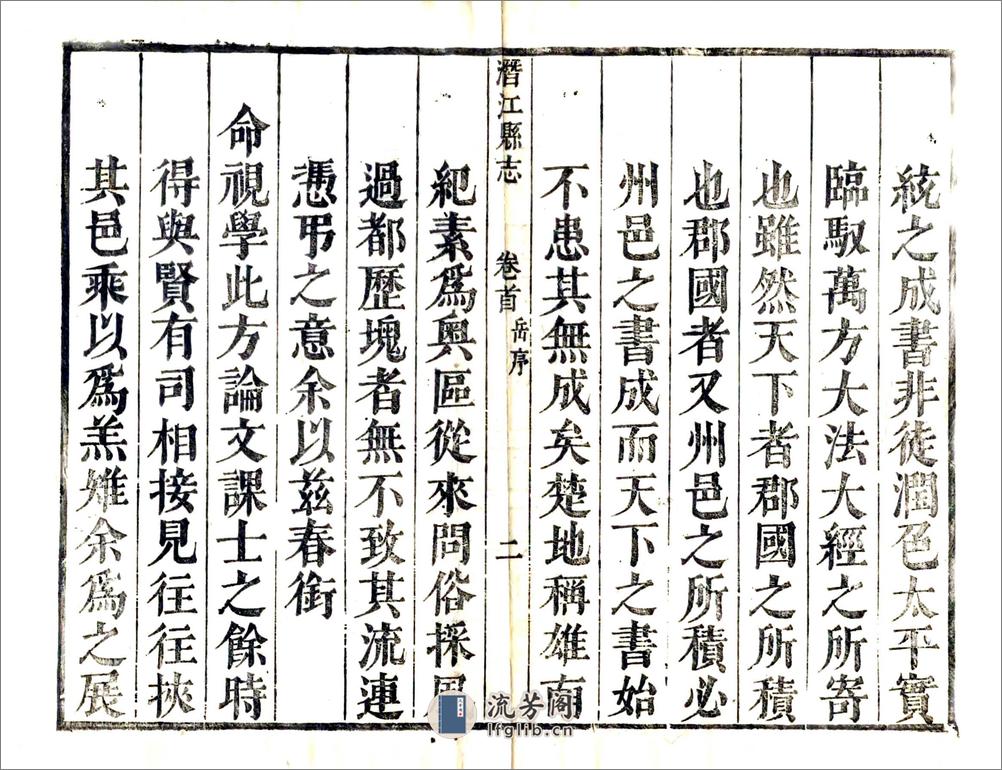 統之成書非徒潤色太平實
臨馭萬方大法大經之所寄
也雖然天下者郡國之所積
也郡國者又州邑之所積必
州邑之書成而天下之書始
不患其無成矣楚地稱雄南
潛江縣志 卷首 岳序 二
紀素為奧區從來問俗採風
過都歷塊者無不致其流連
憑弔之意余以茲春銜
命視學此方論文課士之餘時
得與賢有司相接見往往挾
其邑乘以為羔雉余為之展
流芳阁
lfglib.cn